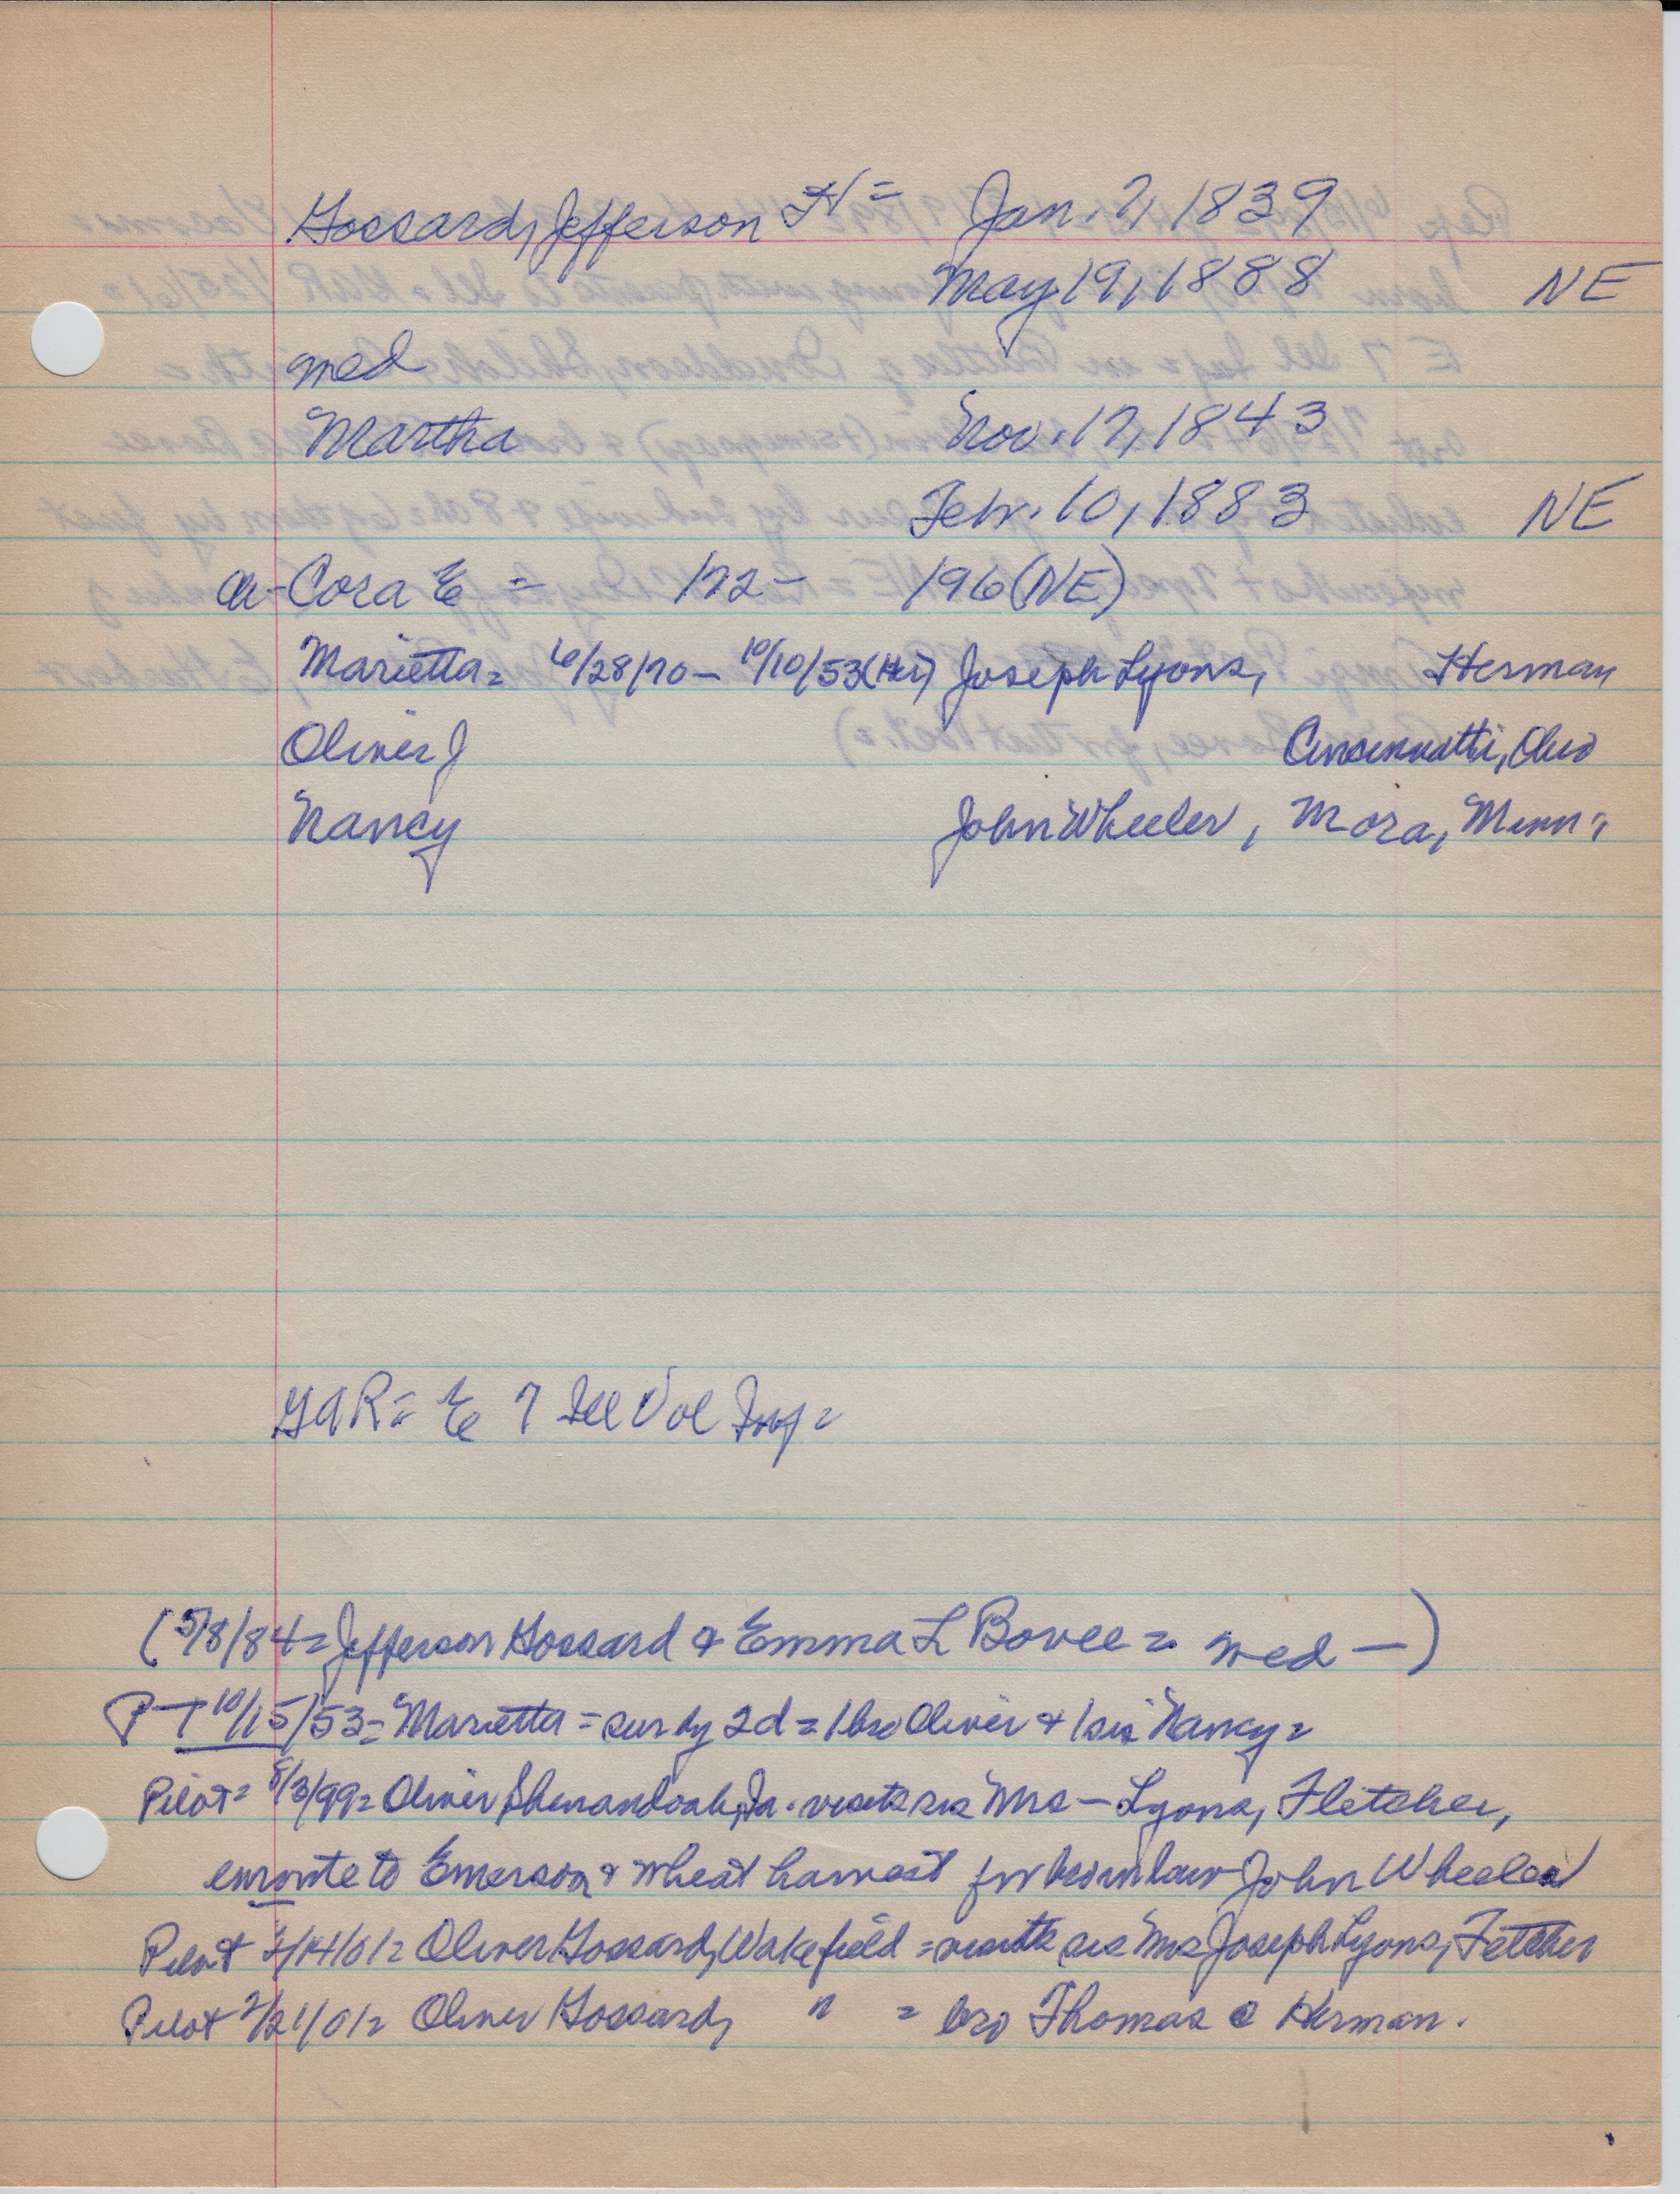 Gossard, Jefferson H = Jan. 7, 1839
May 19, 1888 NE
med
Martha Nov. 17, 1843
Febr. 10, 1883 NE
ch- Cora E = 172- 196 (NE)
Marietta = 6/28/70 - 10/10/53 (Her) Joseph Lyons, Herman
Oliver J Cincinnatti, Ohio
Nancy John Wheeler, Mora, Minn.
GAR = E 7 Ill Vol Inf =
(5/8/84 = Jefferson Gossard & Emma L Bovee = med -)
P-T 10/15/53 = Marietta = sur by 2d = 1 bro Oliver & 1 sis Nancy =
Pilot = 8/3/99 = Oliver Shenandoah, Ia. visits sis Mrs - Lyons, Fletcher,
enroute to Emerson & wheat harvest for bro in law John Wheeler
Pilot /14/01 = Oliver Gossard, Wakefield = visits sis Mrs Joseph Lyons, Fletcher
Pilot 2/21/01 = Oliver Gossard, " = bro Thomas @ Herman.